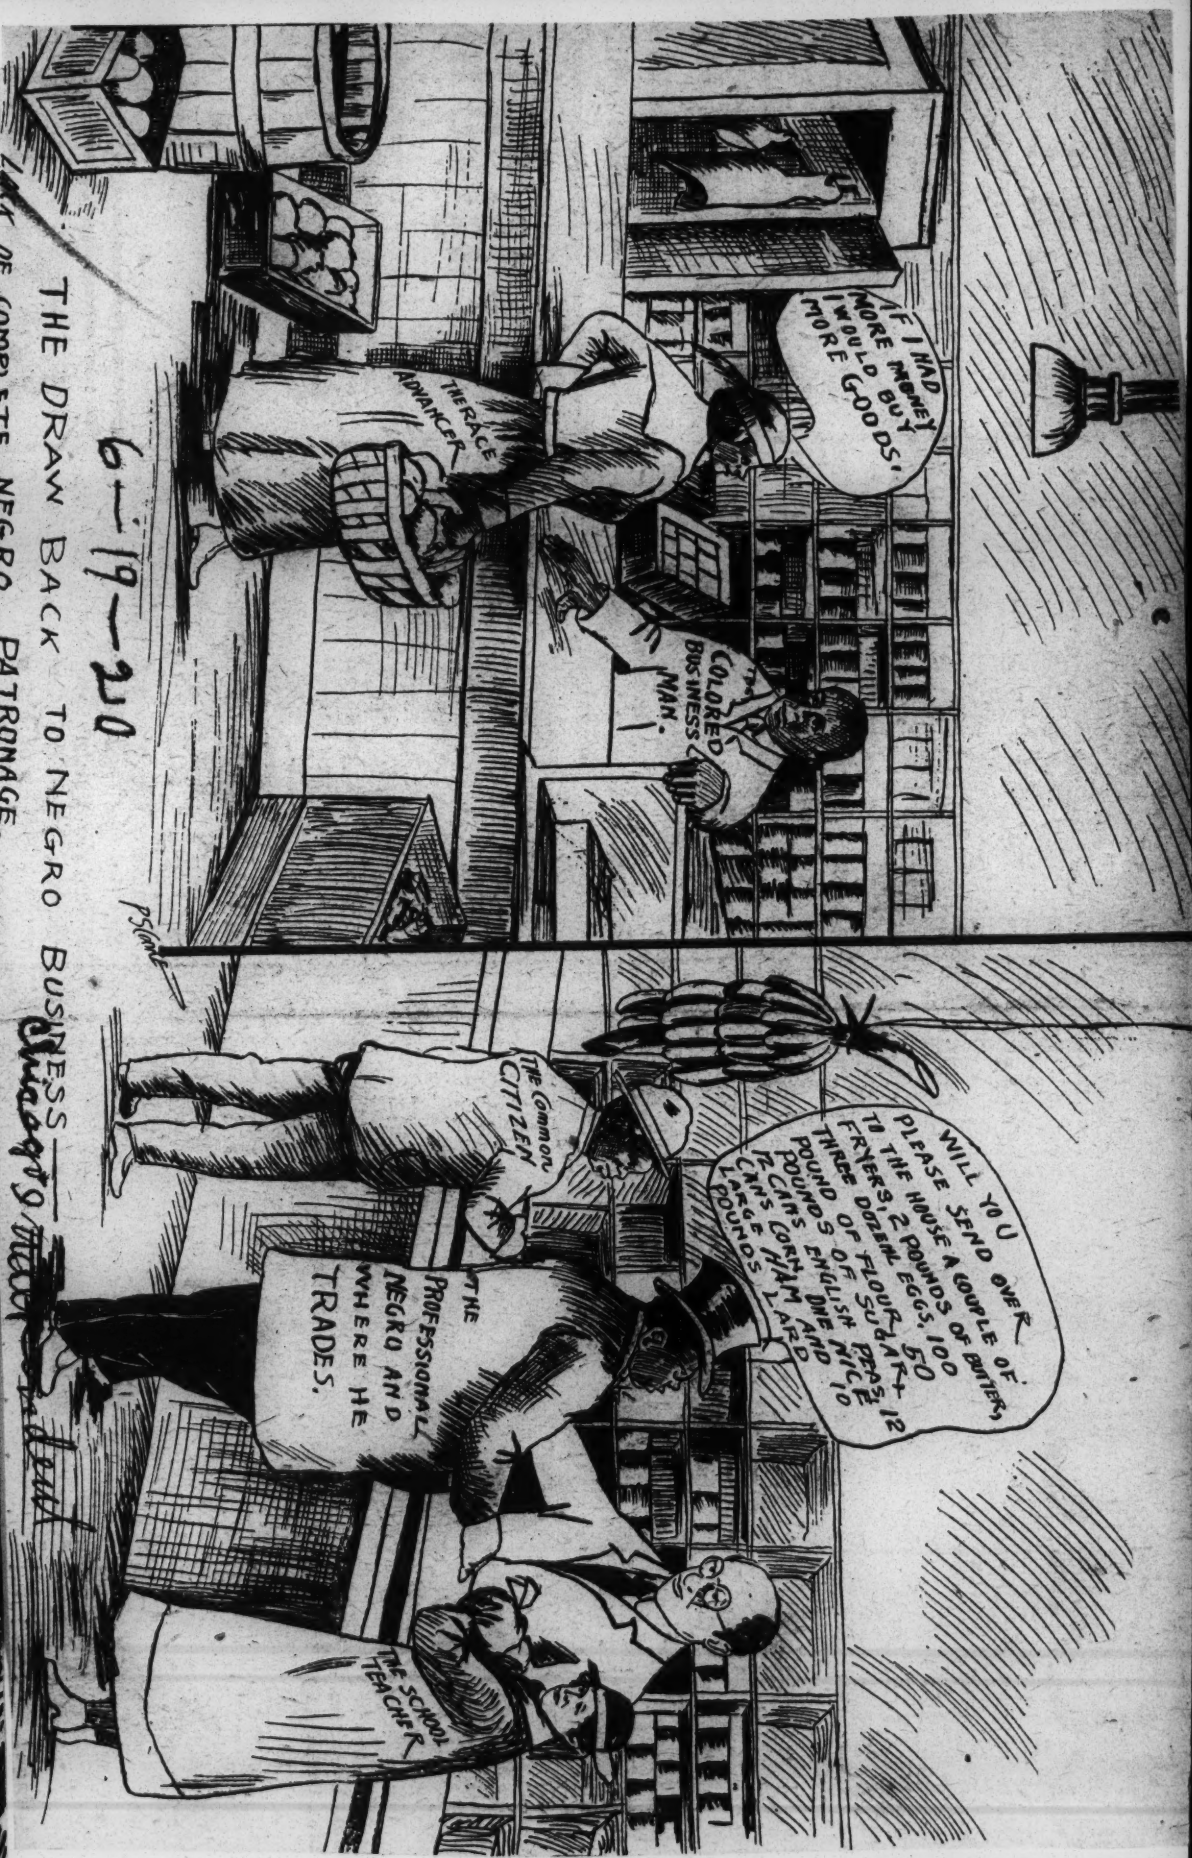 IF I HAD
MORE MONEY
I WOULD BUY
MORE GOODS.
THE RACE
ADVANCER
THE
COLORED
BUSINESS
MAN.
WILL YOU
PLEASE SEND OVER
TO THE HOUSE A COUPLE OF
FRYERS, 2 POUNDS OF BUTTER,
THREE DOZEN EGGS, 100
POUND OF FLOUR, 50
POUNDS OF SUGAR, 12
12 CANS ENGLISH PEAS,
CANS CORN, ONE NICE
LARGE HAM AND 10
POUNDS LARD
THE COMMON
CITIZEN
THE
PROFESSIONAL
NEGRO AND
WHERE HE
TRADES.
THE SCHOOL
TEACHER
6-19-20
THE DRAW BACK TO NEGRO BUSINESS
LACK OF COMPLETE NEGRO PATRONAGE.